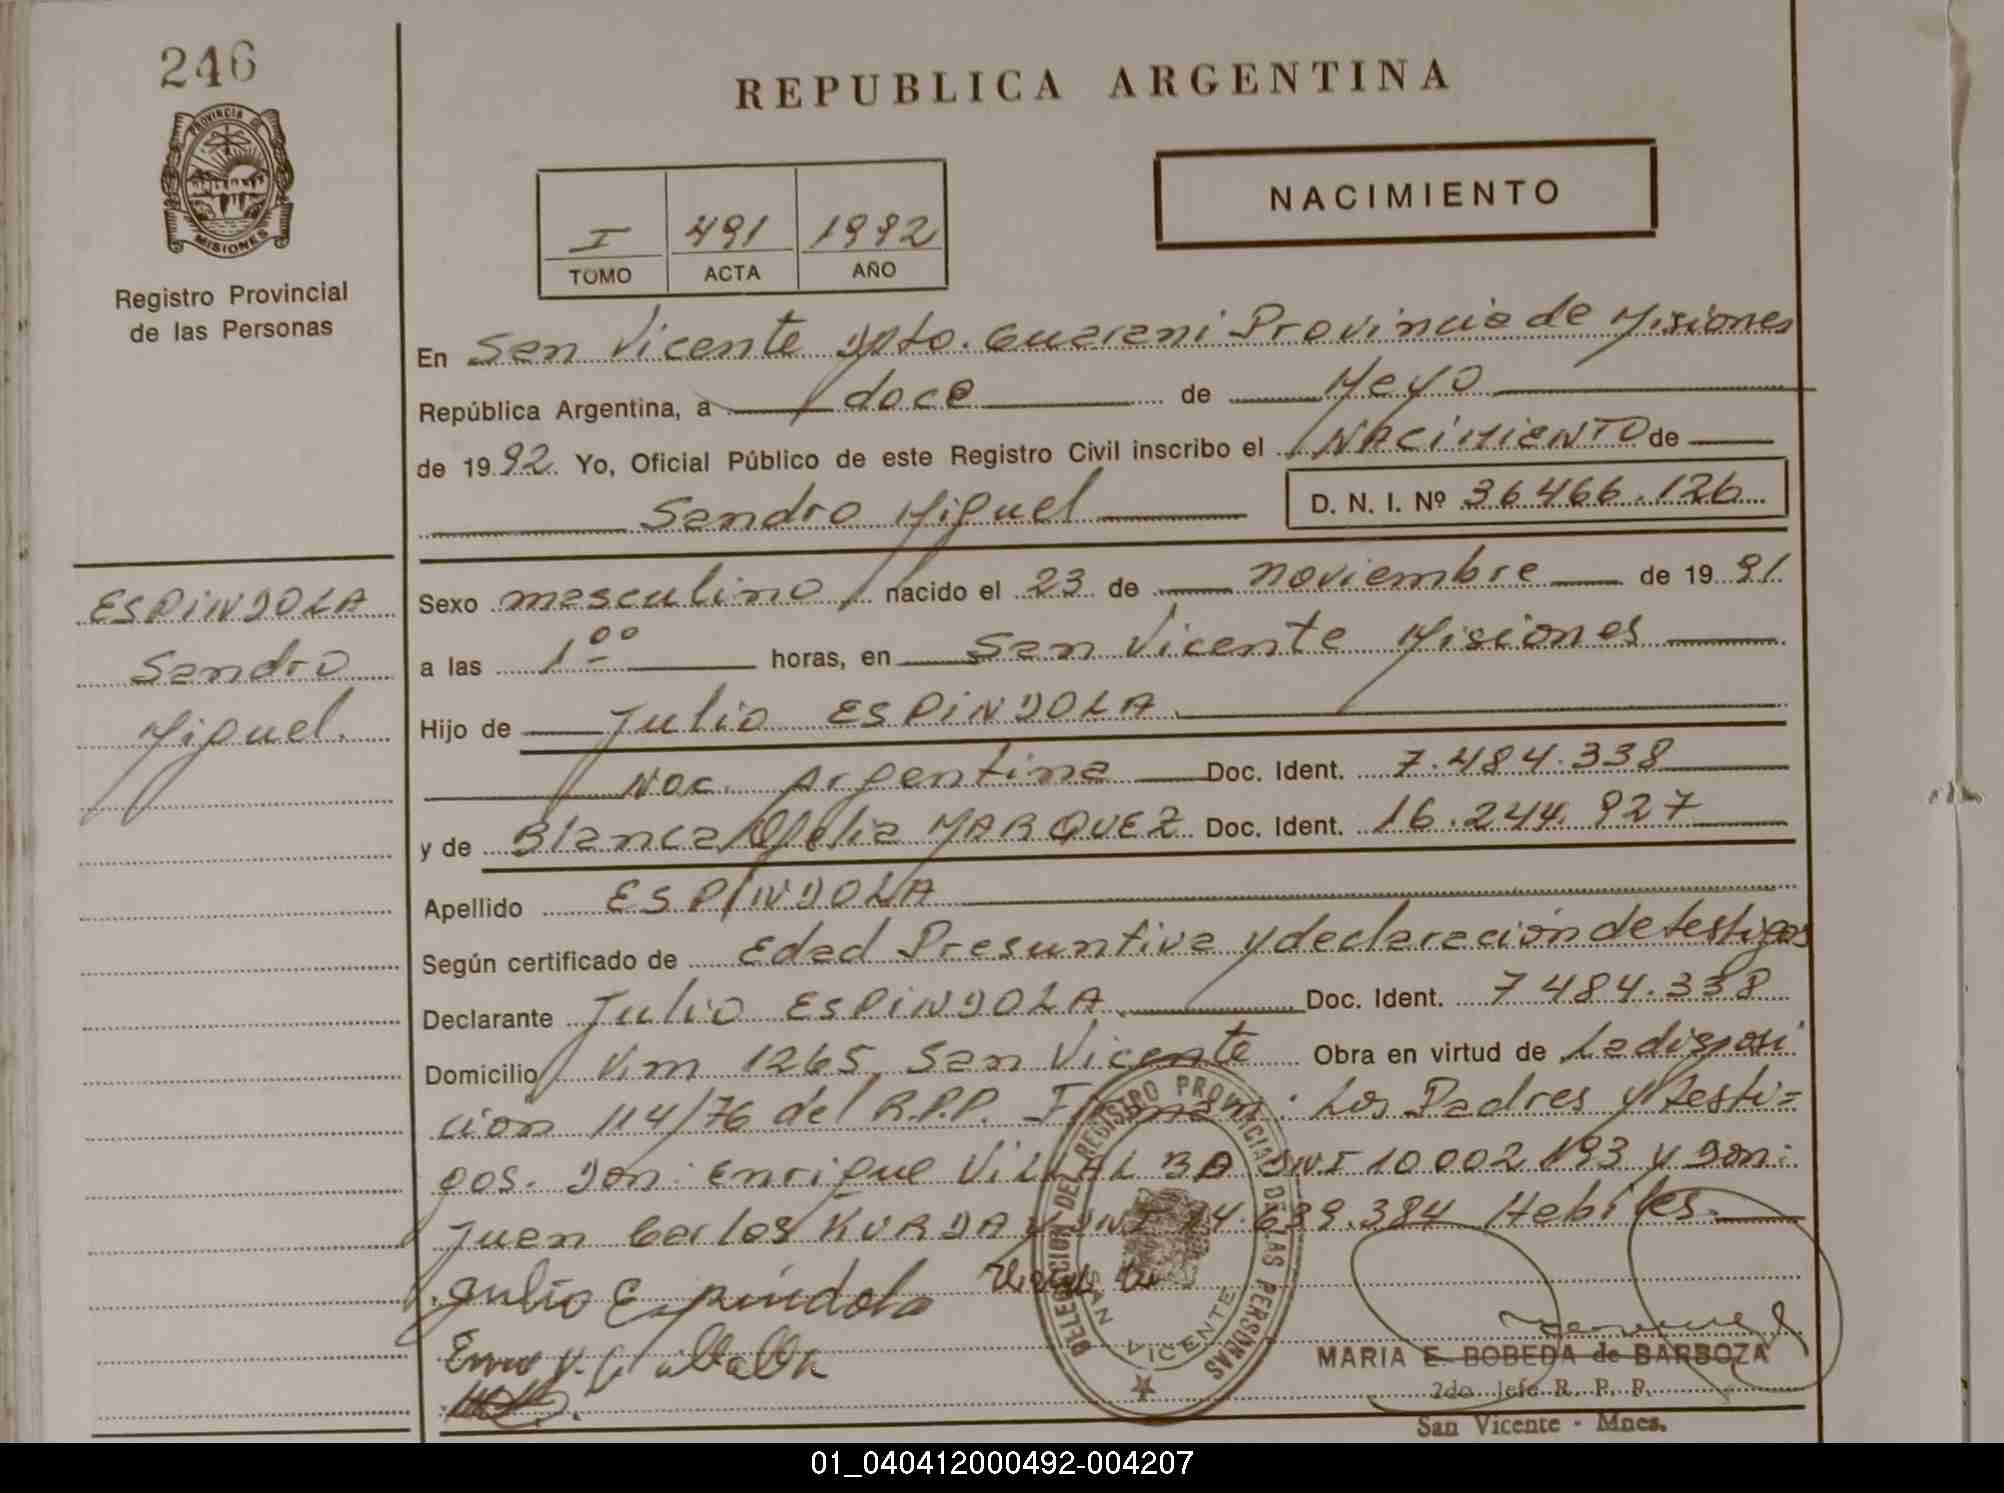 246
PROVINCIA DE
MISIONES
Registro Provincial
de las Personas
REPUBLICA ARGENTINA
NACIMIENTO
I 491 1992
TOMO ACTA AÑO
En San Vicente Dpto. Guarani Provincia de Misiones
República Argentina, a doce de Mayo
de 1992. Yo, Oficial Público de este Registro Civil inscribo el NACIMIENTO de
Sandro Miguel D. N. I. Nº 36466.126
ESPINDOLA
Sandro
Miguel.
Sexo masculino, nacido el 23 de noviembre de 1991
a las 1º⁰ horas, en San Vicente Misiones
Hijo de Julio ESPINDOLA
Nac. Argentina Doc. Ident. 7.484.338
y de Blanca Ofelia MARQUEZ Doc. Ident. 16.244.927
Apellido ESPINDOLA
Según certificado de Edad Presuntiva y declaración de testigos
Declarante Julio ESPINDOLA Doc. Ident. 7484.338
Domicilio Km 1265 San Vicente Obra en virtud de La disposi
cion 114/76 del R.P.P. Firman: Los Padres y testi=
gos. Don: Enrique VILLALBA DNI 10002193 y Don:
Juan Carlos KURDA y DNI 14.639.384 Habiles.
Julio Espindola
DELEGACION DEL REGISTRO PROVINCIAL DE LAS PERSONAS
SAN VICENTE
MARIA E. BOBEDA de BARBOZA
2do Jefe R. P. P.
San Vicente - Mnes.
01_040412000492-004207